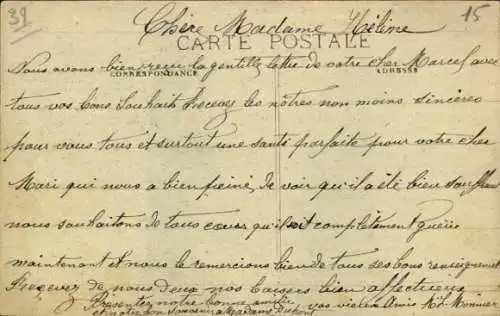 39
15
Chère Madame Hélène
CARTE POSTALE
CORRESPONDANCE
ADRESSE
Nous avons bien reçu la gentille lettre de votre cher Marcel avec
tous vos bons Souhait Recevez les nôtres non moins sincères
pour vous tous et surtout une santé parfaite pour votre cher
Mari qui nous a bien peiné de voir qu'il a été bien souffrant
nous souhaitons de tous cœur qu'il soit complètement guéri
maintenant et nous le remercions bien de tous ses bons renseignement
Recevez de nous deux nos baisers bien affectueux
Presenter notre bonne amitié vos vieux Amis
et notre bon souvenir a Madame